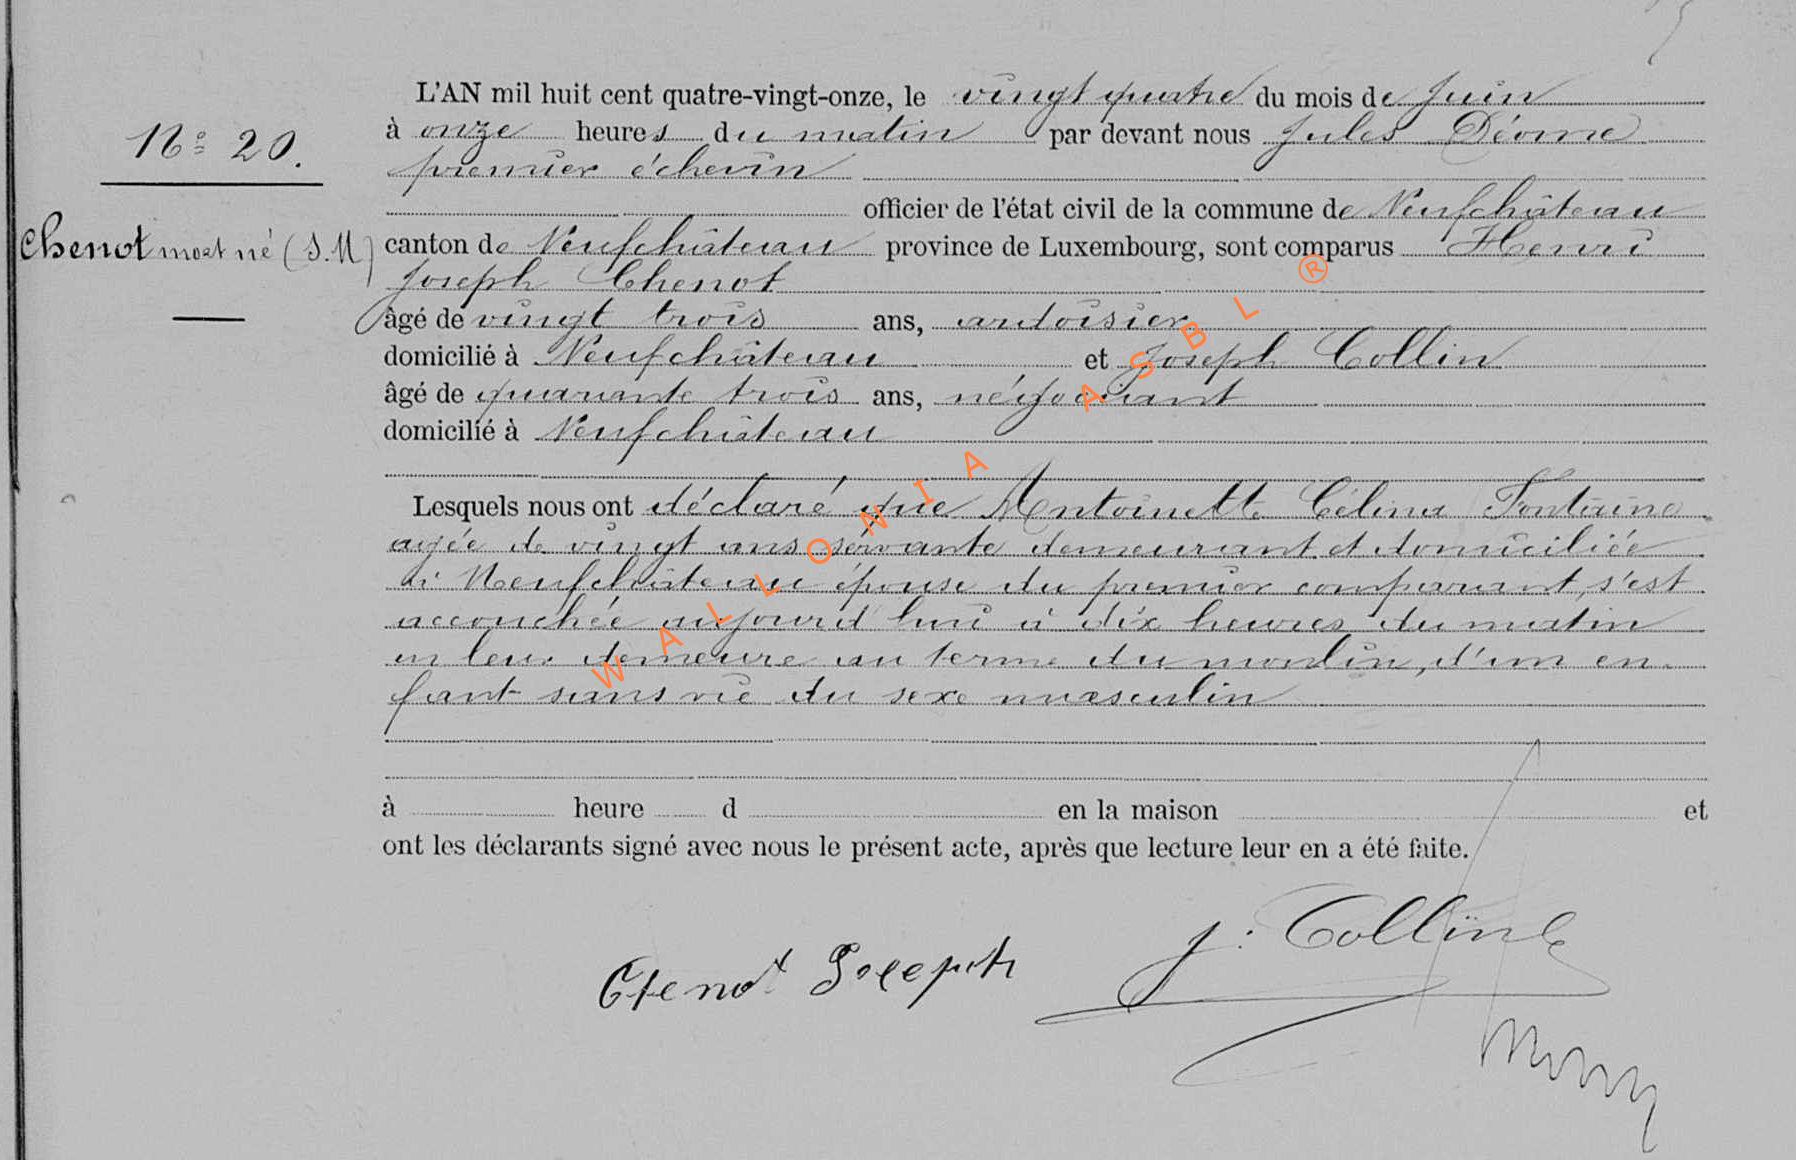 L'AN mil huit cent quatre-vingt-onze, le vingt quatre du mois de Juin
à onze heures du matin par devant nous Jules Déome
premier échevin
officier de l'état civil de la commune de Neufchâteau
canton de Neufchâteau province de Luxembourg, sont comparus Henri
Joseph Chenot
âgé de vingt trois ans, ardoisier
domicilié à Neufchâteau et Joseph Collin
âgé de quarante trois ans, négociant
domicilié à Neufchâteau
Lesquels nous ont déclaré que Antoinette Célina Fontaine
agée de vingt ans servante demeurant et domiciliée
à Neufchâteau épouse du premier comparant, s'est
accouchée aujourd'hui à dix heures du matin
en leur demeure au terme du moulin, d'un en-
fant sans vie du sexe masculin
à heure d en la maison et
ont les déclarants signé avec nous le présent acte, après que lecture leur en a été faite.
Chenot Joseph
J. Collin
No 20.
Chenot mort né (S.M)
WALLONIA ASBL ®